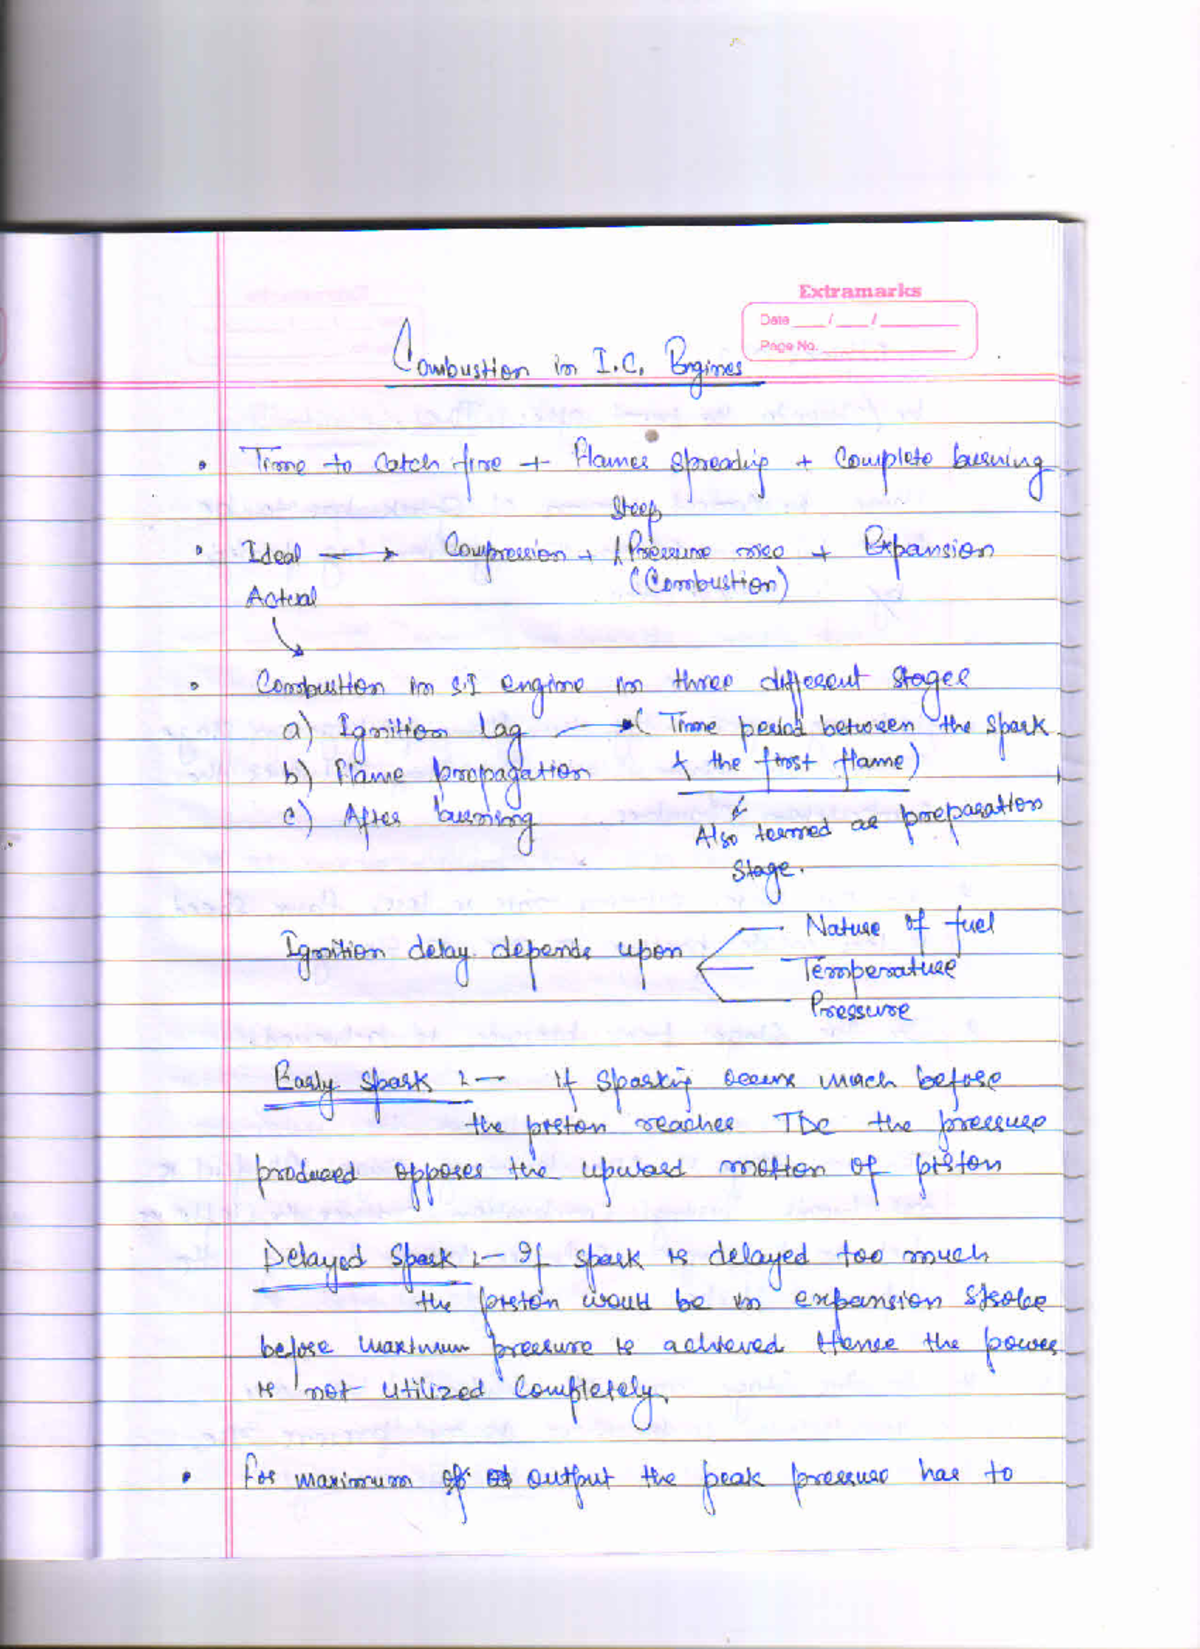 Extramarks
Date ___/___/______
Page No.
Combustion in I.C. Engines
• Time to catch fire + Flames spreading + Complete burning
Steep
• Ideal → Compression + Pressure rise + Expansion
(Combustion)
Actual
• Combustion in S.I engine in three different stages
a) Ignition lag → (Time period between the spark
& the first flame)
b) Flame propagation
c) After burning
Also termed as preparation
stage.
Ignition delay depends upon
Nature of fuel
Temperature
Pressure
Early spark :— If sparking occurs much before
the piston reaches TDC the pressure
produced opposes the upward motion of piston
Delayed Spark :— If spark is delayed too much
the piston would be in expansion stroke
before maximum pressure is achieved Hence the power
is not utilized completely.
• For maximum output the peak pressure has to